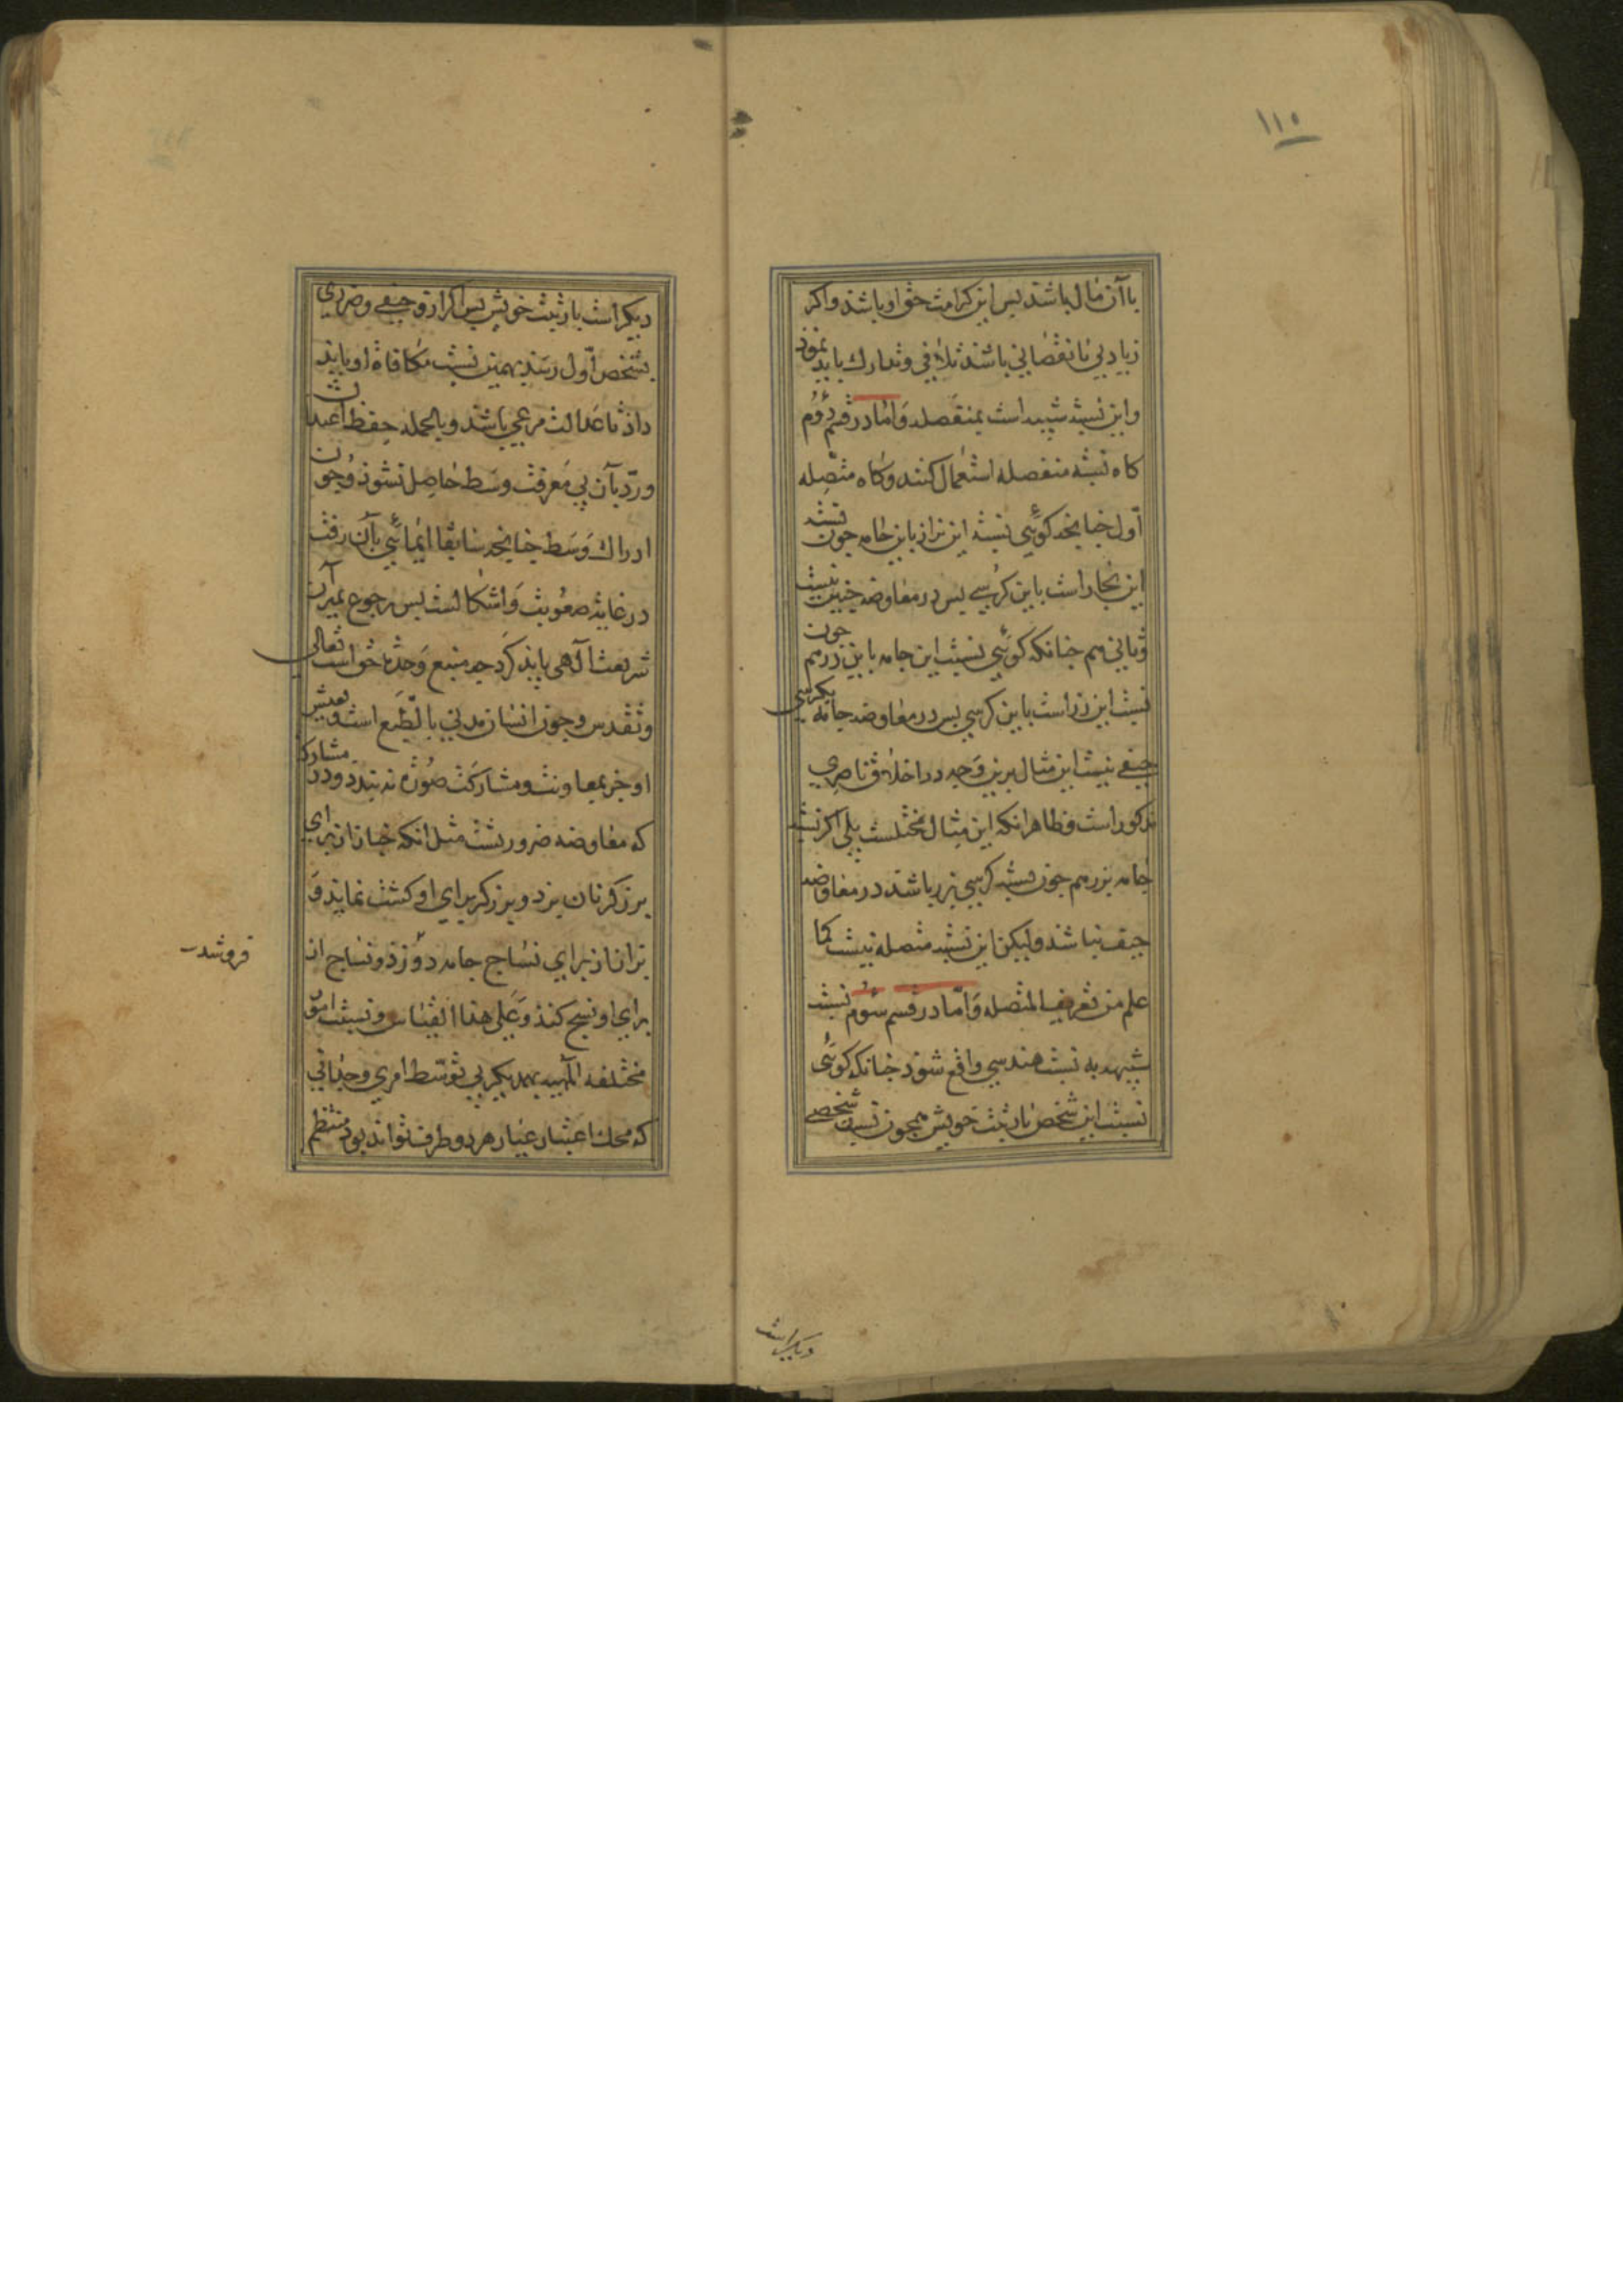 ۱۱۰
با آن مال باشد پس این کرامت حق او باشد و اکر
زیادتی یا نقصانی باشد تلافی و تدارك باید نمود
و این نسبة شبیه است بمنفصله و اما در قسم دوم
کاه نسبة منفصله استعمال کنند و کاه متصله
اول چنانچه کوئی نسبة این بزاز باین جامه چون نسبة
این نجار است باین کرسی پس در معاوضه حیفی نیست
و ثانی هم چنانکه کوئی نسبت این جامه باین زر هم چون
نسبت این زر است باین کرسی پس در معاوضه جامه بکرسی
حیفی نیست این مثال برین وجه در اخلاق ناصری
مذکور است و ظاهر انکه این مثال مختلست بلی اکر نسبت
جامه بزر هم چون نسبة کرسی بزر باشد در معاوضه
حیف نباشد ولیکن این نسبة متصله نیست کما
علم من تعریف المتصله و اما در قسم سوم نسبت
شبیهه به نسبت هندسی واقع شود چنانکه کوئی
نسبت این شخص با رتبت خویش همچون نسبت شخصی
دیکر است
دیکر است با رتبت خویش پس اکر ازو حیفی و ضرری
بشخص اول رسد بهمین نسبت مکافاة او باید
داد تا عدالت مرعی باشد و بالجمله حفظ اعتدال
و رد بآن بی معرفت وسط حاصل نشود و چون
ادراك وسط چنانچه سابقا ایمائی بآن رفت
در غایة صعوبت و اشکالست پس رجوع بمیزان
شریعت آلهی باید کرد چه منبع وحدة خواست تعالی
و تقدس و چون انسان مدنی بالطبع است و تعیش
او جز بمعاونت و مشارکت صورة نه بندد و در مشارکت
که معاوضه ضروریست مثل انکه خباز از برای
برزکر نان پزد و برزکر برای او کشت نماید و
بزاز از برای نساج جامه دوزد و نساج از
برای او نسج کند و علی هذا القیاس و نسبت امور
مختلفه الماهیه بهمدیکر بی توسط امری وحدانی
که محك اعتبار عیار هر دو طرف تواند بود منتظم
فروشد